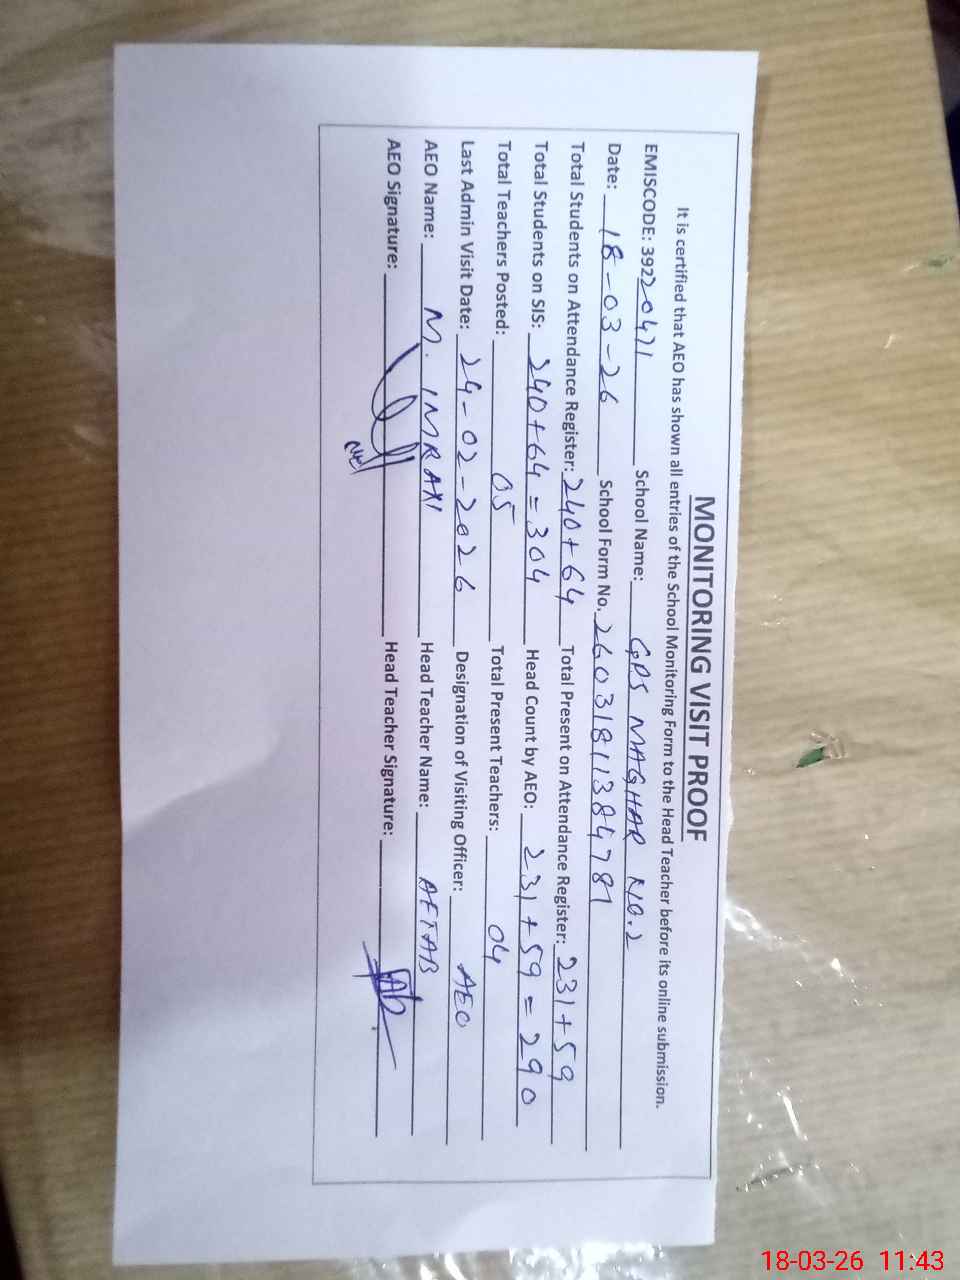 MONITORING VISIT PROOF
It is certified that AEO has shown all entries of the School Monitoring Form to the Head Teacher before its online submission.
EMISCODE: 39220471 School Name: GPS MAGHAR NO.2
Date: 18-03-26 School Form No. 26031811384781
Total Students on Attendance Register: 240+64 Total Present on Attendance Register: 231+59
Total Students on SIS: 240+64=304 Head Count by AEO: 231+59=290
Total Teachers Posted: 05 Total Present Teachers: 04
Last Admin Visit Date: 24-02-2026 Designation of Visiting Officer: AEO
AEO Name: M. IMRAN Head Teacher Name: AFTAB
AEO Signature: Head Teacher Signature:
18-03-26 11:43